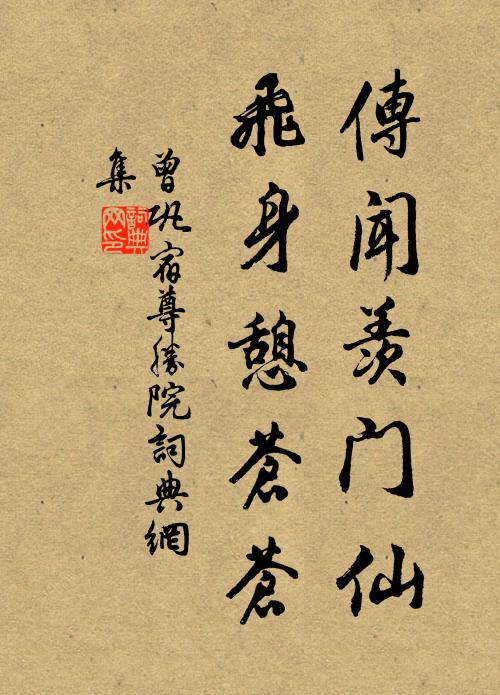 傳聞羨門仙
飛身憩蒼蒼
曾巩宿尊勝院詞典網
集
詞典網印